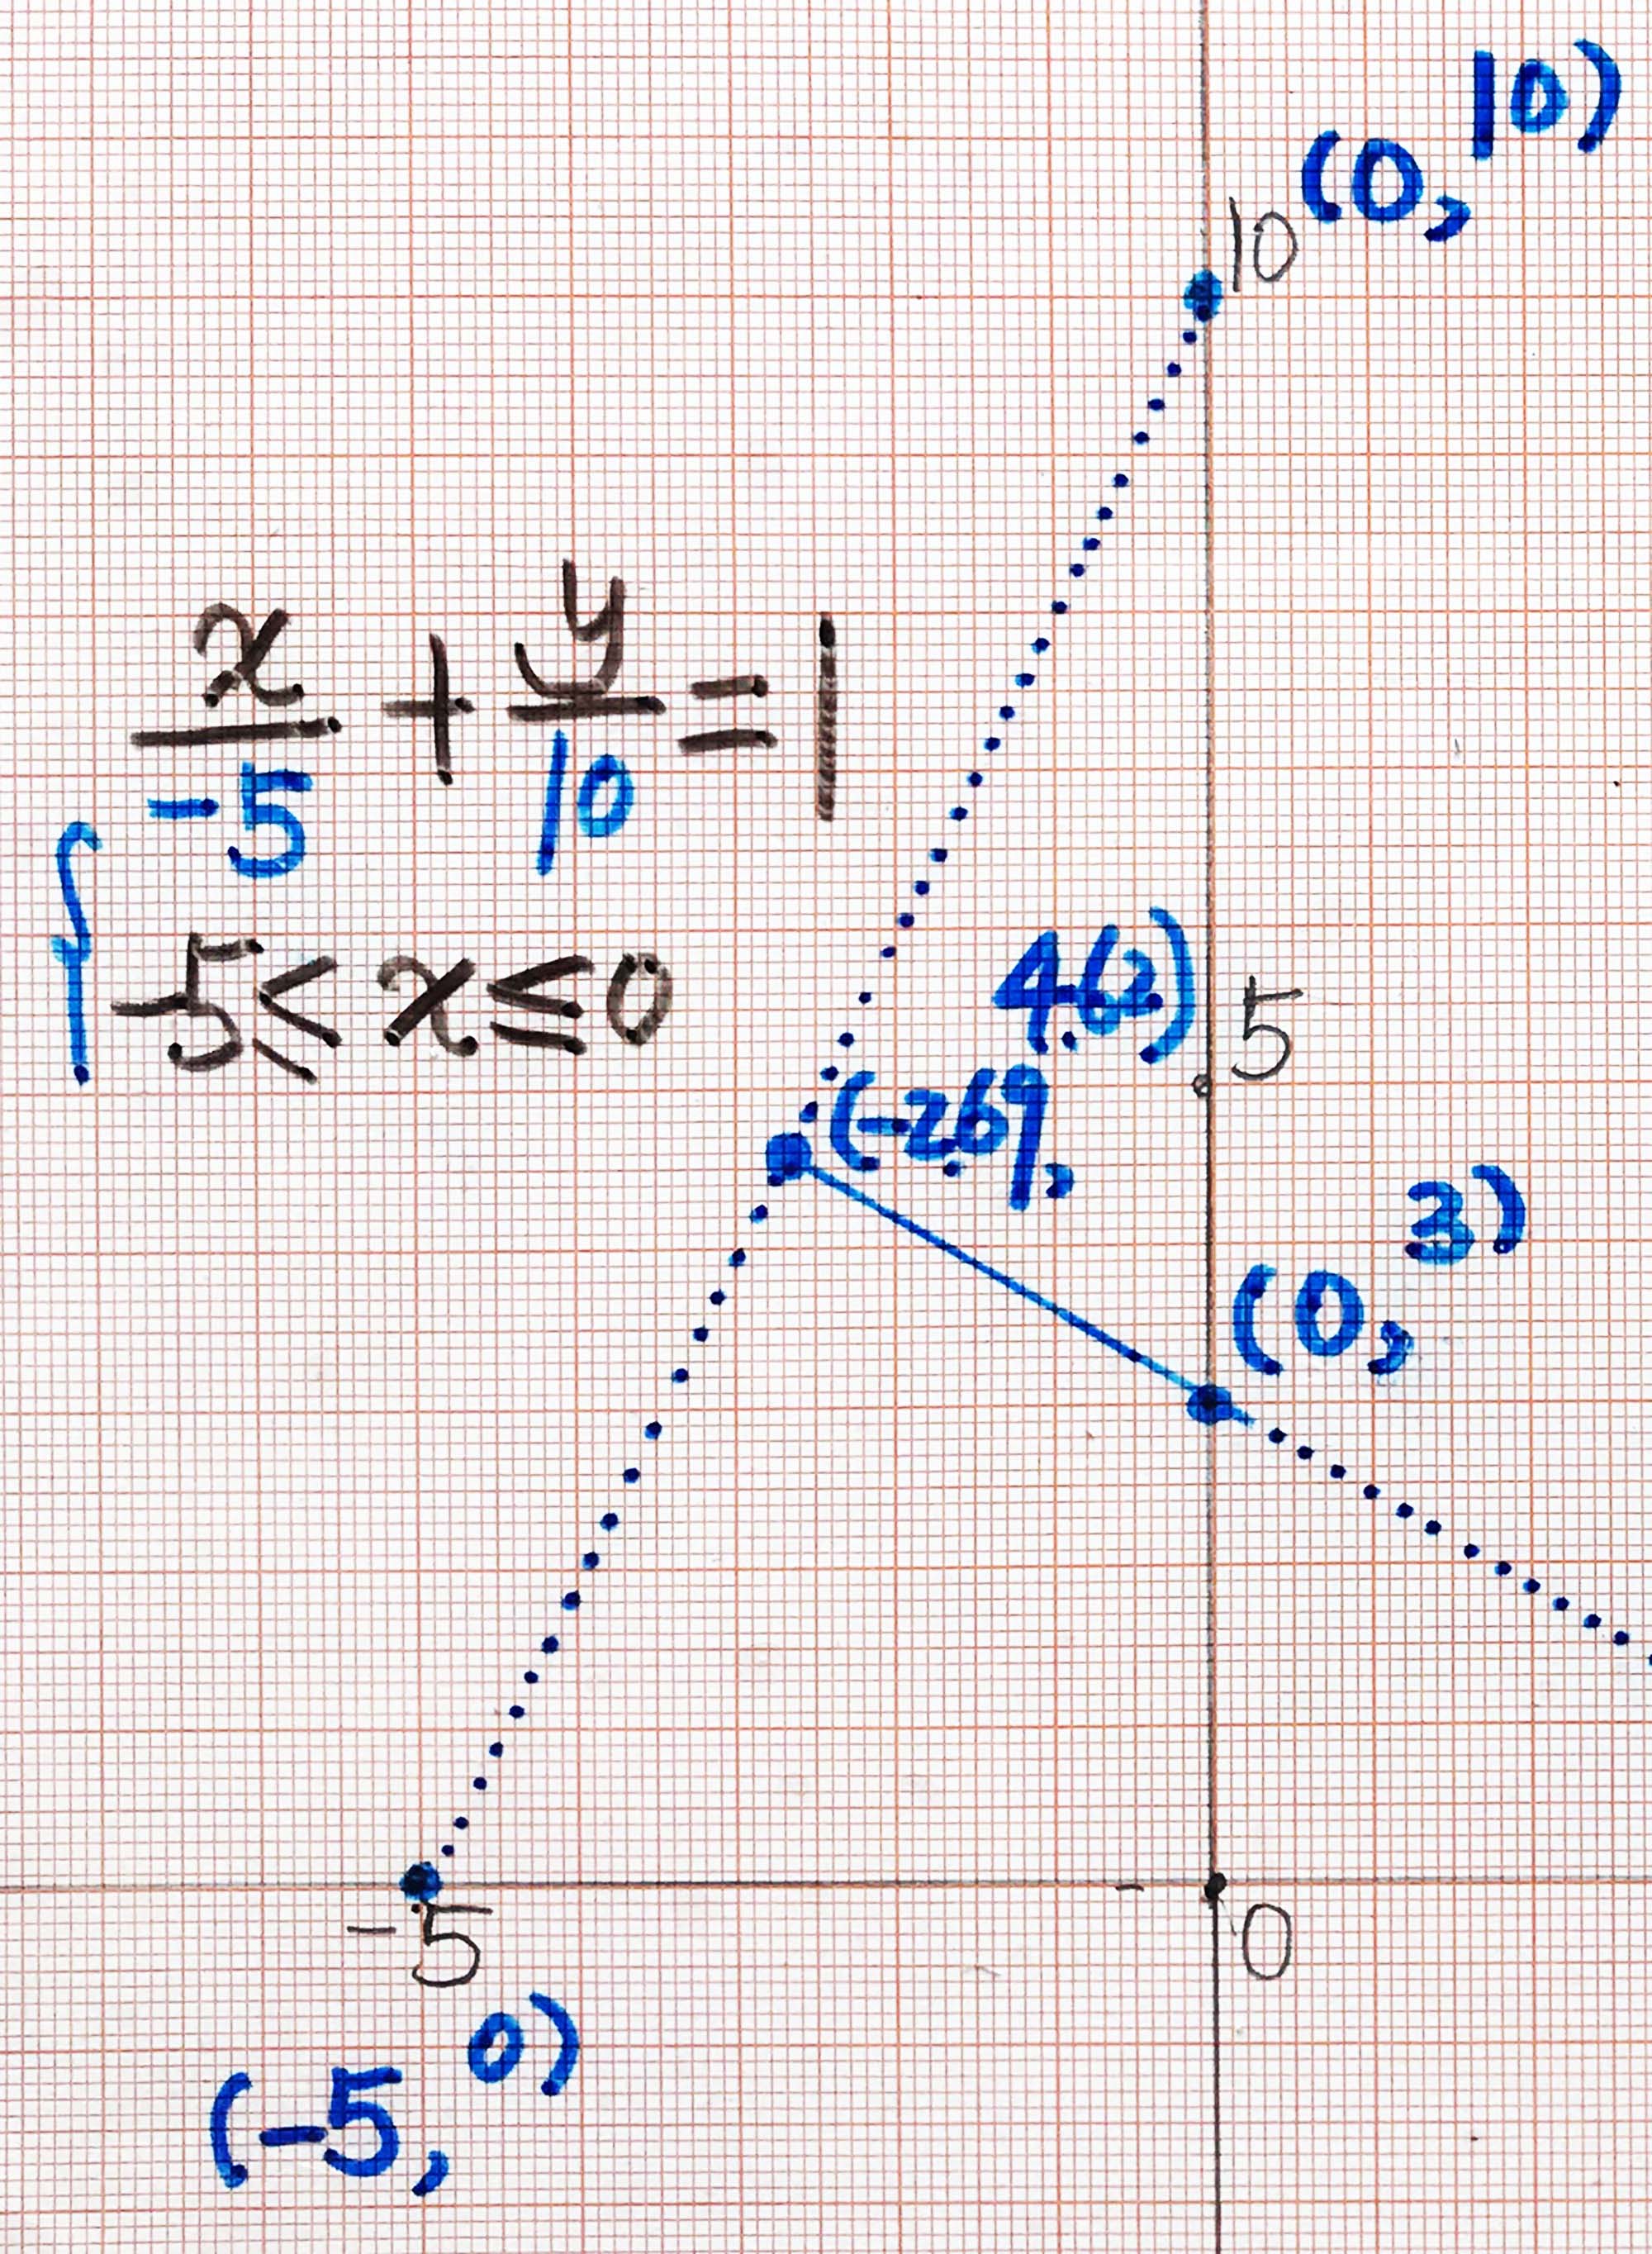 (0, 10)
10
x/-5 + y/10 = 1
-5 ≤ x ≤ 0
5
(-2.69, 4.62)
(0, 3)
-5
0
(-5, 0)